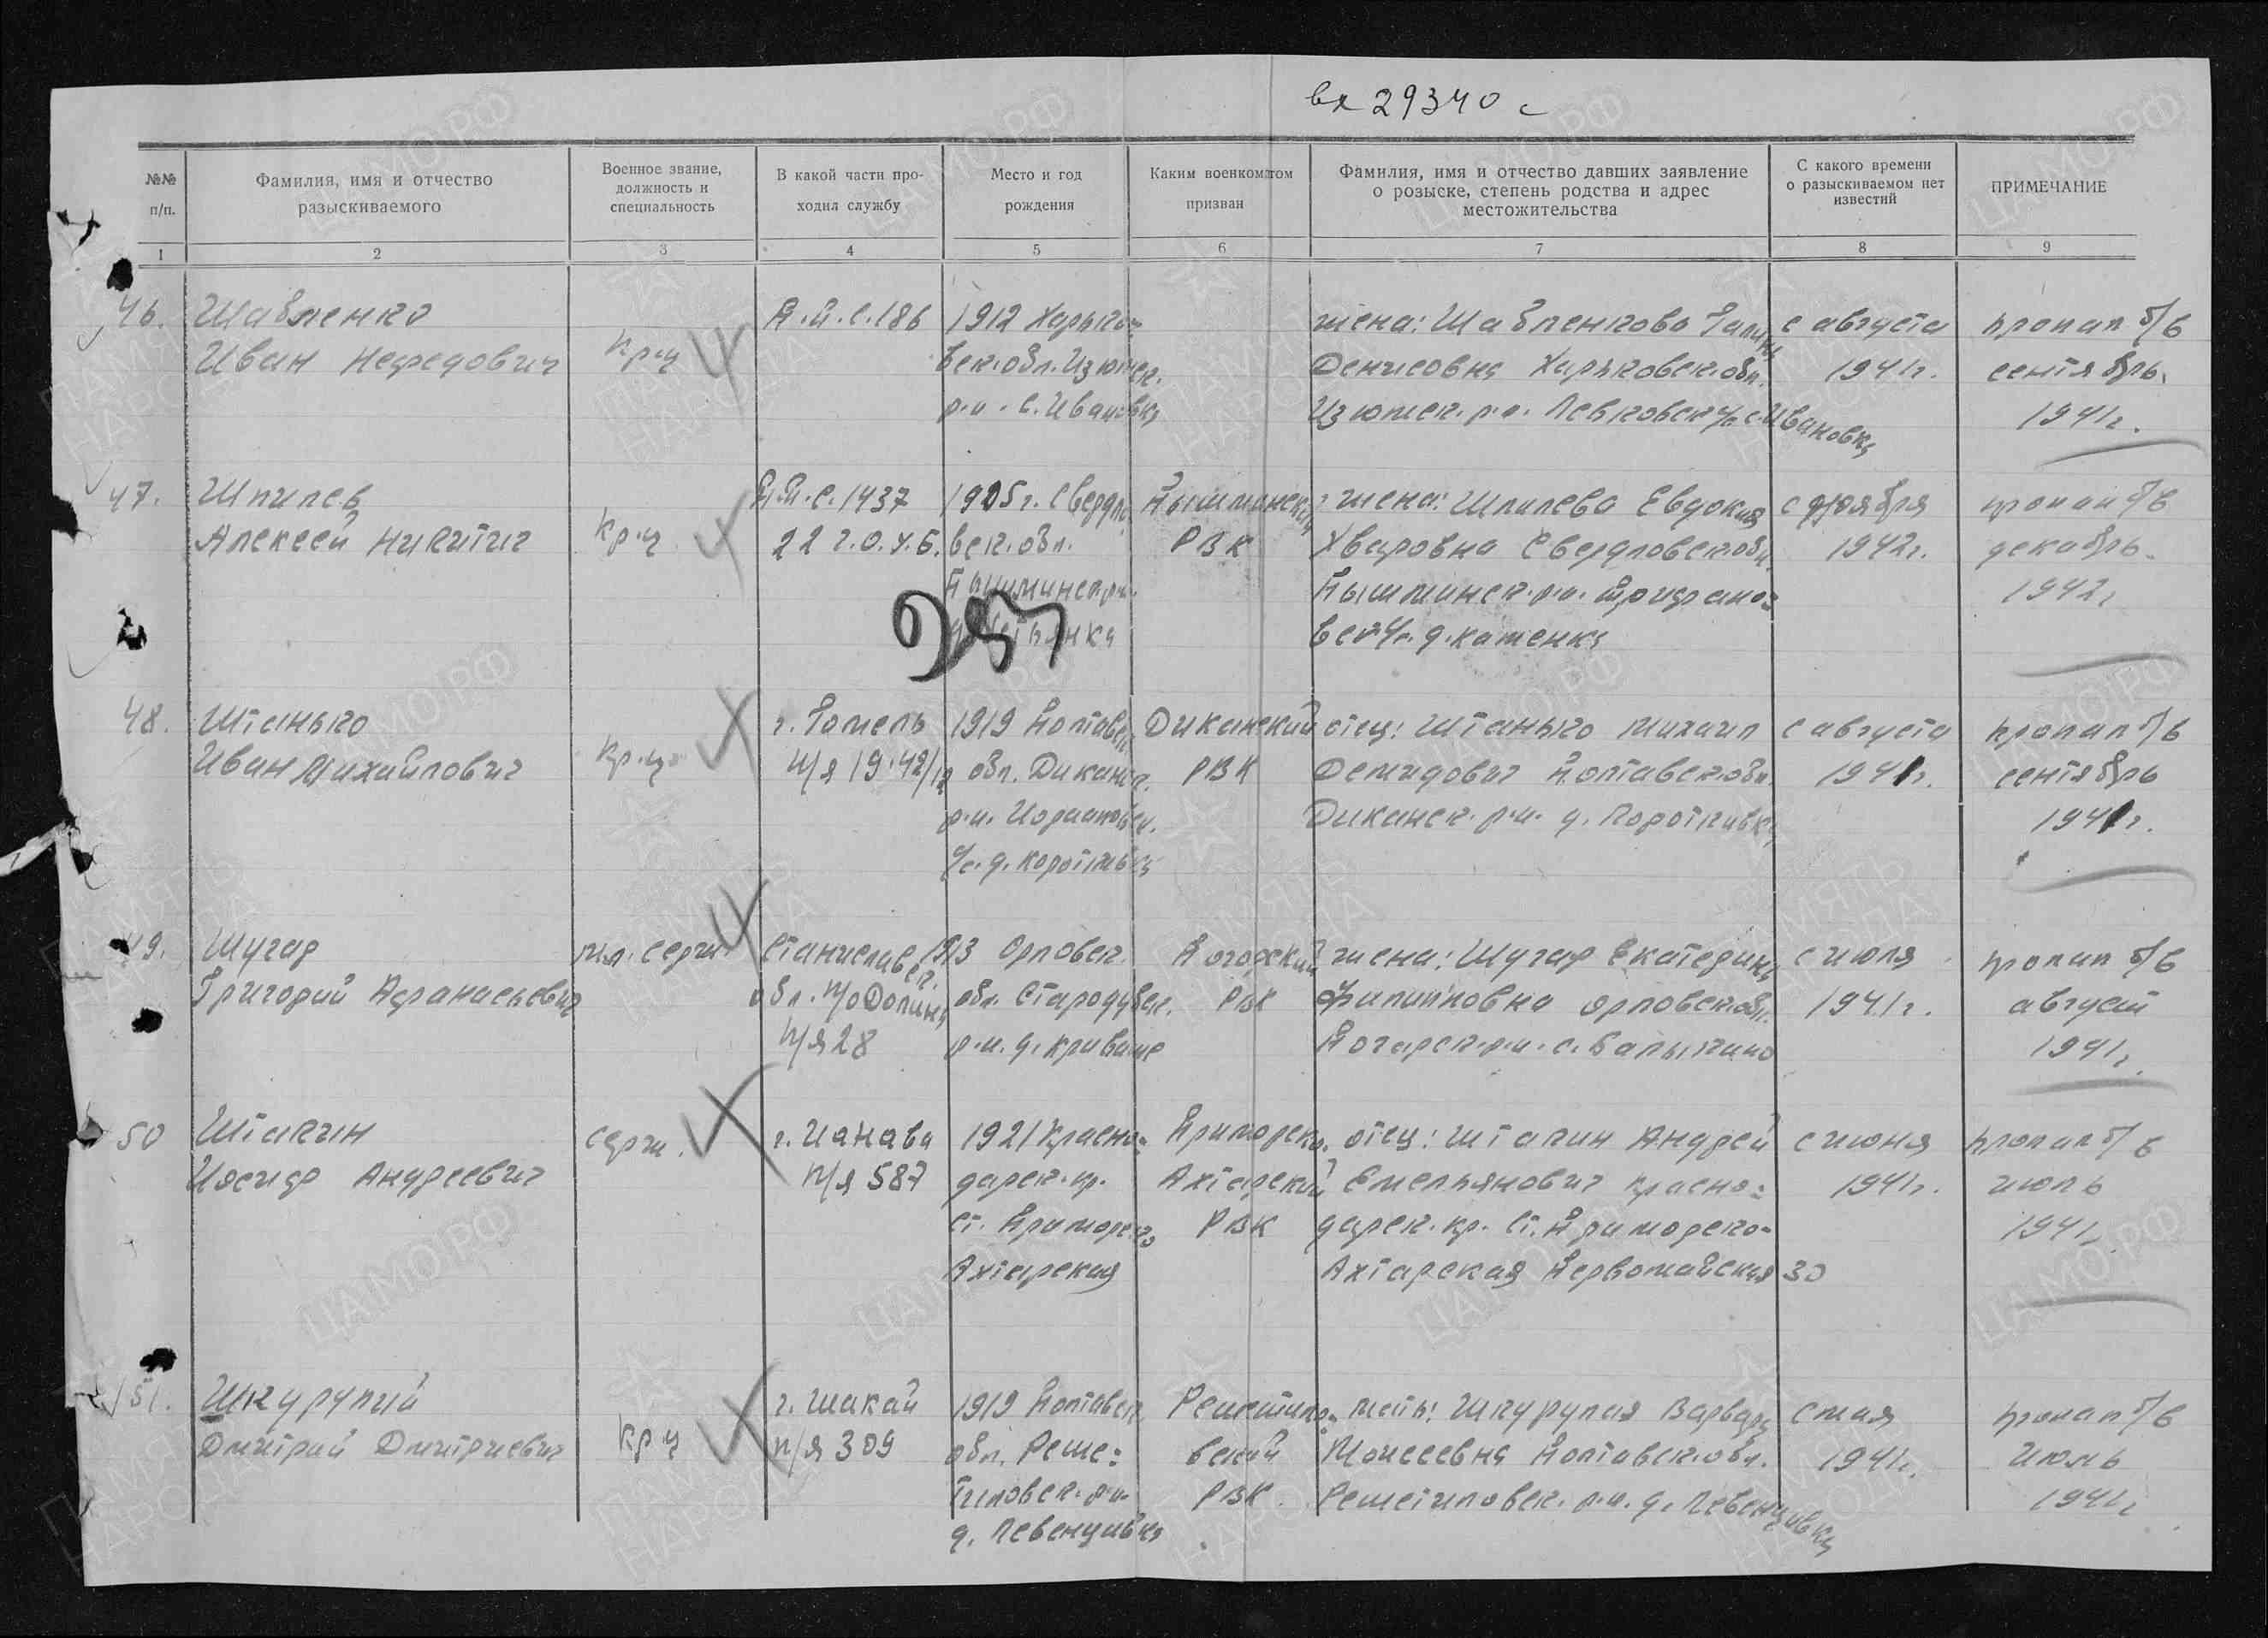 вх 29340 с
№№ п/п.
Фамилия, имя и отчество разыскиваемого
Военное звание, должность и специальность
В какой части про-ходил службу
Место и год рождения
Каким военкоматом призван
Фамилия, имя и отчество давших заявление о розыске, степень родства и адрес местожительства
С какого времени о разыскиваемом нет известий
ПРИМЕЧАНИЕ
1 2 3 4 5 6 7 8 9
46. Шавленко
Иван Нефедович
кр-ц
П.П.С. 186
1912 Харьков-
вск. обл. Изюмск.
р-н. с. Ивановка
жена: Шавленкова
Денисовна Харьковск. обл.
Изюмск. р-н. Левковск с/с. Ивановка
с августа
1941г.
пропал б/в
сентябрь
1941г.
47. Шпилев
Алексей Никитич
кр-ц
П.П.С. 1437
22 г.О.У.Б.
1905г. Свердло
вск. обл.
Пышминск р-н.
Пышминский
РВК
жена: Шпилева Евдокия
Свердловск. обл.
Пышминск. р-н.
с/с. д. Катенка
1942г.
пропал б/в
декабрь
1942г
957
48. Штанько
Иван Михайлович
кр-ц
г. Гомель
п/я 19.42/12
1919 Полтавск
обл. Диканск.
р-н.
с/с. д. Коротивка
Диканский
РВК
отец: Штанько Михаил
Демидович Полтавск. обл.
Диканск. р-н. д.
с августа
1941г.
пропал б/в
сентябрь
1941г.
49. Шугар
Григорий Афанасьевич
мл. серж
Станиславск.
обл. п/о Долина
п/я 28
1913 Орловск.
обл. Стародубск.
р-н. д.
Погарский
РВК
жена: Шугар Екатерина
Филипповна Орловск. обл.
Погарск. р-н. с. Балыкино
с июля
1941г.
пропал б/в
август
1941г.
50 Штакин
Иосиф Андреевич
серж.
г. Ианава
п/я 587
1921 Красно-
дарск. кр.
ст. Приморско
Ахтарская
Приморско.
Ахтарский
РВК
отец: Штакин Андрей
Емельянович Красно-
дарск. кр. ст. Приморско-
Ахтарская Первомайская 30
с июня
1941г.
пропал б/в
июль
1941г.
51. Шкурупий
Дмитрий Дмитриевич
кр-ц
г. Шакай
п/я 309
1919 Полтавск
обл. Реше-
тиловск. р-н.
д. Левенцивка
Решетило-
вский
РВК.
мать: Шкурупая Варвара
Моисеевна Полтавск. обл.
Решетиловск. р-н. д. Левенцовка
с мая
1941г.
пропал б/в
июль
1941г